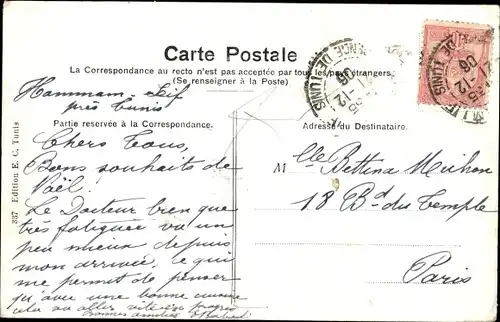 Carte Postale
La Correspondance au recto n'est pas acceptée par tous les pays étrangers.
(Se renseigner à la Poste)
Hammam-Lif
près Tunis
Partie reservée à la Correspondance.
Adresse du Destinataire.
Chers Tous,
Bons souhaits de
Noël.
Le Docteur bien que
très fatiguée va un
peu mieux depuis
mon arrivée, ce qui
me permet de penser
qu'avec une bonne
cela va aller vite en
Bonnes amitiés
Mlle Bettina Michon
18 Bd du Temple
Paris
337 Edition E. C. Tunis
DE TUNIS
12
06
DE TUNIS
12
06